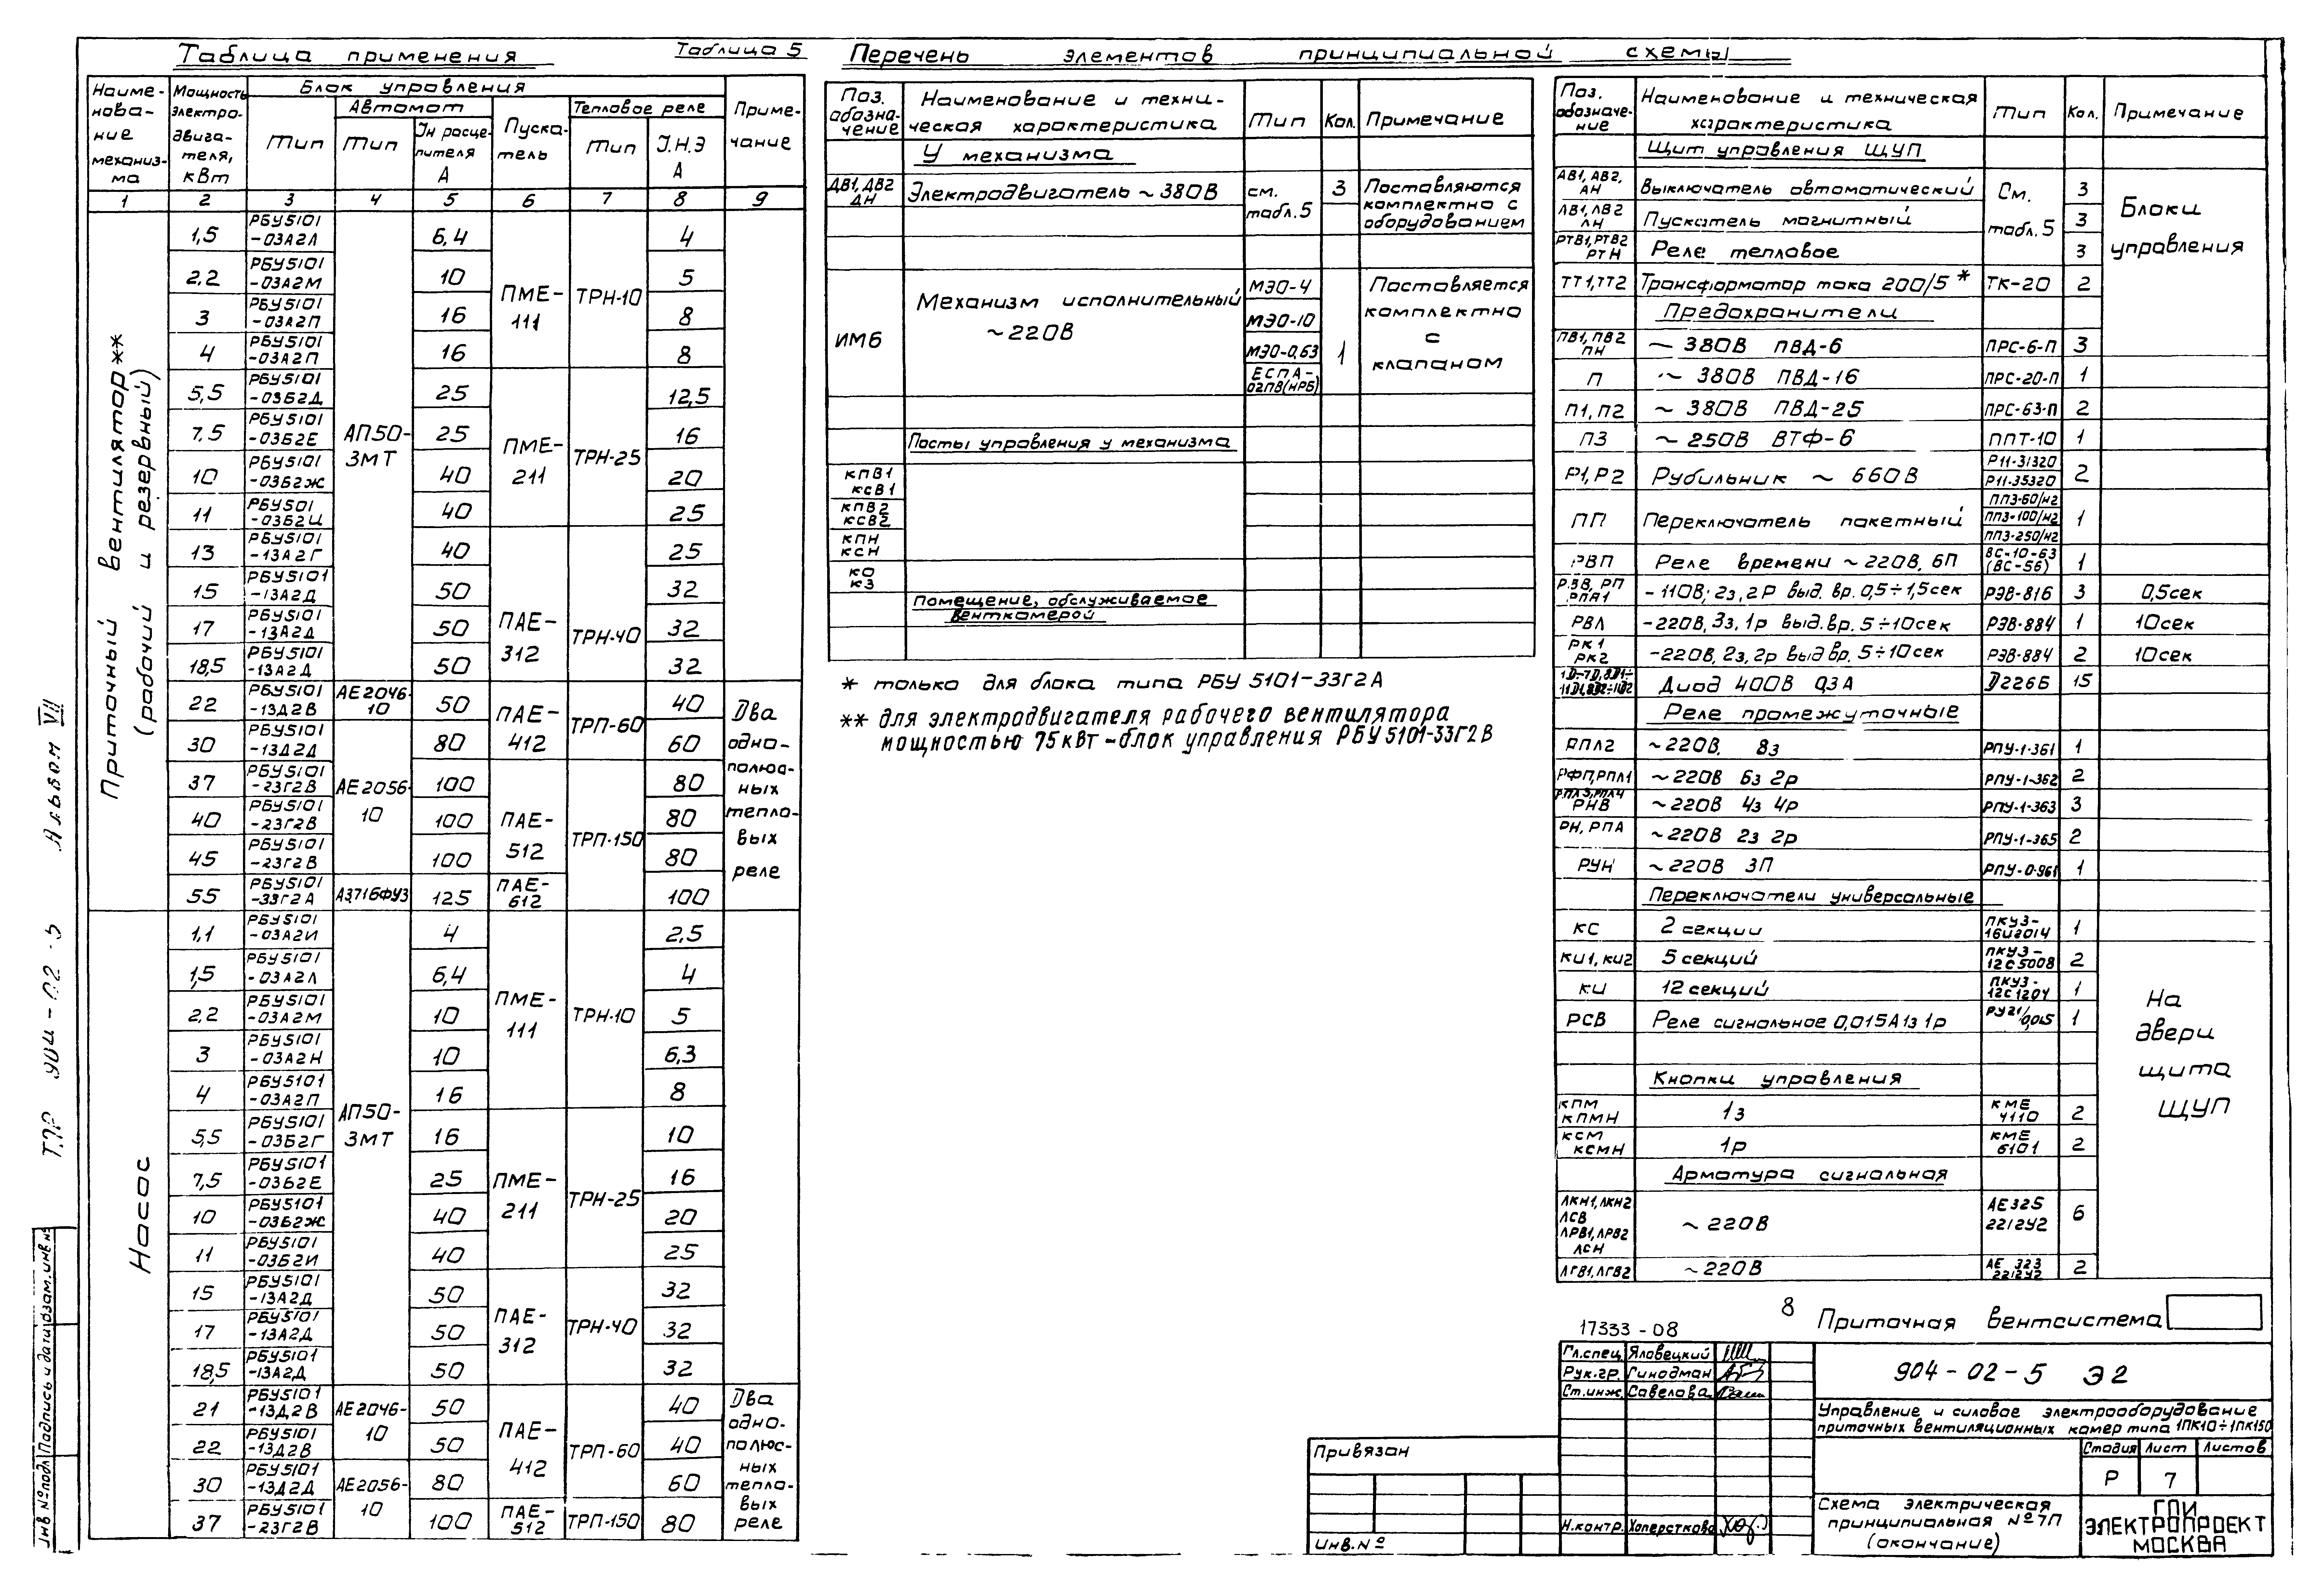 Таблица применения
Таблица 5
Наиме-
нова-
ние
механиз-
ма
Мощность
электро-
двига-
теля,
кВт
Блок управления
Тип
Автомат
Тип
Iн расце-
пителя
А
Пуска-
тель
Тепловое реле
Тип
I.Н.Э
А
Приме-
чание
1 2 3 4 5 6 7 8 9
Приточный вентилятор**
(рабочий и резервный)
1,5 РБУ5101-03А2Л 6,4 4
2,2 РБУ5101-03А2М 10 5
3 РБУ5101-03А2П 16 8
4 РБУ5101-03А2П 16 8
ПМЕ-
111
ТРН-10
5,5 РБУ5101-03Б2Д 25 12,5
7,5 РБУ5101-03Б2Е 25 16
10 РБУ5101-03Б2Ж 40 20
11 РБУ5101-03Б2Ц 40 25
АП50-
3МТ
ПМЕ-
211
ТРН-25
13 РБУ5101-13А2Г 40 25
15 РБУ5101-13А2Д 50 32
17 РБУ5101-13А2Д 50 32
18,5 РБУ5101-13А2Д 50 32
ПАЕ-
312
ТРН-40
22 РБУ5101-13Д2В АЕ2046-10 50 40
30 РБУ5101-13Д2Д 80 60
ПАЕ-
412
ТРП-60
37 РБУ5101-23Г2В 100 80
40 РБУ5101-23Г2В 100 80
45 РБУ5101-23Г2В 100 80
АЕ2056-
10
ПАЕ-
512
ТРП-150
55 РБУ5101-33Г2А А3716ФУ3 125 ПАЕ-612 100
Два
одно-
полюс-
ных
тепло-
вых
реле
Насос
1,1 РБУ5101-03А2И 4 2,5
1,5 РБУ5101-03А2Л 6,4 4
2,2 РБУ5101-03А2М 10 5
3 РБУ5101-03А2Н 10 6,3
4 РБУ5101-03А2П 16 8
ПМЕ-
111
ТРН-10
5,5 РБУ5101-03Б2Г 16 10
7,5 РБУ5101-03Б2Е 25 16
10 РБУ5101-03Б2Ж 40 20
11 РБУ5101-03Б2И 40 25
АП50-
3МТ
ПМЕ-
211
ТРН-25
15 РБУ5101-13А2Д 50 32
17 РБУ5101-13А2Д 50 32
18,5 РБУ5101-13А2Д 50 32
ПАЕ-
312
ТРН-40
21 РБУ5101-13Д2В 50 40
22 РБУ5101-13Д2В 50 40
30 РБУ5101-13Д2Д 80 60
АЕ2046-
10
ПАЕ-
412
ТРП-60
37 РБУ5101-23Г2В АЕ2056-10 100 ПАЕ-512 ТРП-150 80
Два
одно-
полюс-
ных
тепло-
вых
реле
Перечень элементов принципиальной схемы
Поз.
обозна-
чение
Наименование и техни-
ческая характеристика
Тип
Кол.
Примечание
У механизма
ДВ1, ДВ2
ДН
Электродвигатель ~ 380В
см.
табл.5
3
Поставляются
комплектно с
оборудованием
ИМБ
Механизм исполнительный
~220В
МЭО-4
МЭО-10
МЭО-0,63
ЕСПА-
02ПВ(НРБ)
1
Поставляется
комплектно
с
клапаном
Посты управления у механизма
КПВ1
КСВ1
КПВ2
КСВ2
КПН
КСН
КО
КЗ
Помещение, обслуживаемое
венткамерой
* только для блока типа РБУ 5101-33Г2А
** для электродвигателя рабочего вентилятора
мощностью 75кВт-блок управления РБУ5101-33Г2В
Поз.
обозначе-
ние
Наименование и техническая
характеристика
Тип
Кол.
Примечание
Щит управления ЩУП
АВ1, АВ2,
АН
Выключатель автоматический 3
ЛВ1, ЛВ2
ЛН
Пускатель магнитный 3
РТВ1, РТВ2
РТН
Реле тепловое 3
См.
табл.5
Блоки
управления
ТТ1, ТТ2 Трансформатор тока 200/5 * ТК-20 2
Предохранители
ПВ1, ПВ2
ПН
~ 380В ПВД-6 ПРС-6-П 3
П ~ 380В ПВД-16 ПРС-20-П 1
П1, П2 ~ 380В ПВД-25 ПРС-63-П 2
П3 ~ 250В ВТФ-6 ППТ-10 1
Р1, Р2 Рубильник ~ 660В
Р11-31320
Р11-35320
2
ПП Переключатель пакетный
ПП3-60/н2
ПП3-100/н2
ПП3-250/н2
1
РВП Реле времени ~220В, 6П
ВС-10-63
(ВС-56)
1
РВВ, РП
РПА1
-110В; 2з, 2р выд. вр. 0,5÷1,5сек РЭВ-816 3 0,5сек
РВЛ -220В, 3з, 1р выд. вр. 5÷10сек РЭВ-884 1 10сек
РК1
РК2
-220В, 2з, 2р выд вр. 5÷10сек РЭВ-884 2 10сек
Диод 400В 0,3А Д226Б 15
Реле промежуточные
РПЛ2 ~220В, 8з РПУ-1-361 1
РФП, РПЛ1 ~220В 6з 2р РПУ-1-362 2
РПЛ3, РПЛ4
РНВ
~220В 4з 4р РПУ-1-363 3
РН, РПА ~220В 2з 2р РПУ-1-365 2
РУН ~220В 3П РПУ-0-961 1
Переключатели универсальные
КС 2 секции
ПКУ3-
16И2014
1
КИ1, КИ2 5 секций
ПКУ3-
12С5008
2
КИ 12 секций
ПКУ3-
12С1204
1
РСВ Реле сигнальное 0,015А 1з 1р РУ21/0,015 1
Кнопки управления
КПМ
КПМН
1з
КМЕ
4110
2
КСМ
КСМН
1р
КМЕ
5101
2
Арматура сигнальная
ЛКН1, ЛКН2
ЛСВ
ЛРВ1, ЛРВ2
ЛСН
~ 220В
АЕ325
2212У2
6
ЛГВ1, ЛГВ2 ~220В
АЕ 323
2212У2
2
На
двери
щита
ЩУП
8
Приточная вентсистема
17333-08
Гл.спец. Яловецкий
Рук.гр. Гинодман
Ст.инж. Савелова
Н.контр. Хаперсткова
904-02-5 Э2
Управление и силовое электрооборудование
приточных вентиляционных камер типа 1ПК10÷1ПК150
Стадия Лист Листов
Р 7
Схема электрическая
принципиальная №7П
(окончание)
ГПИ
ЭЛЕКТРОПРОЕКТ
МОСКВА
Привязан
Инв.№
ТПР 904-02-5 Альбом VII
Инв №подл Подпись и дата Взам.инв №